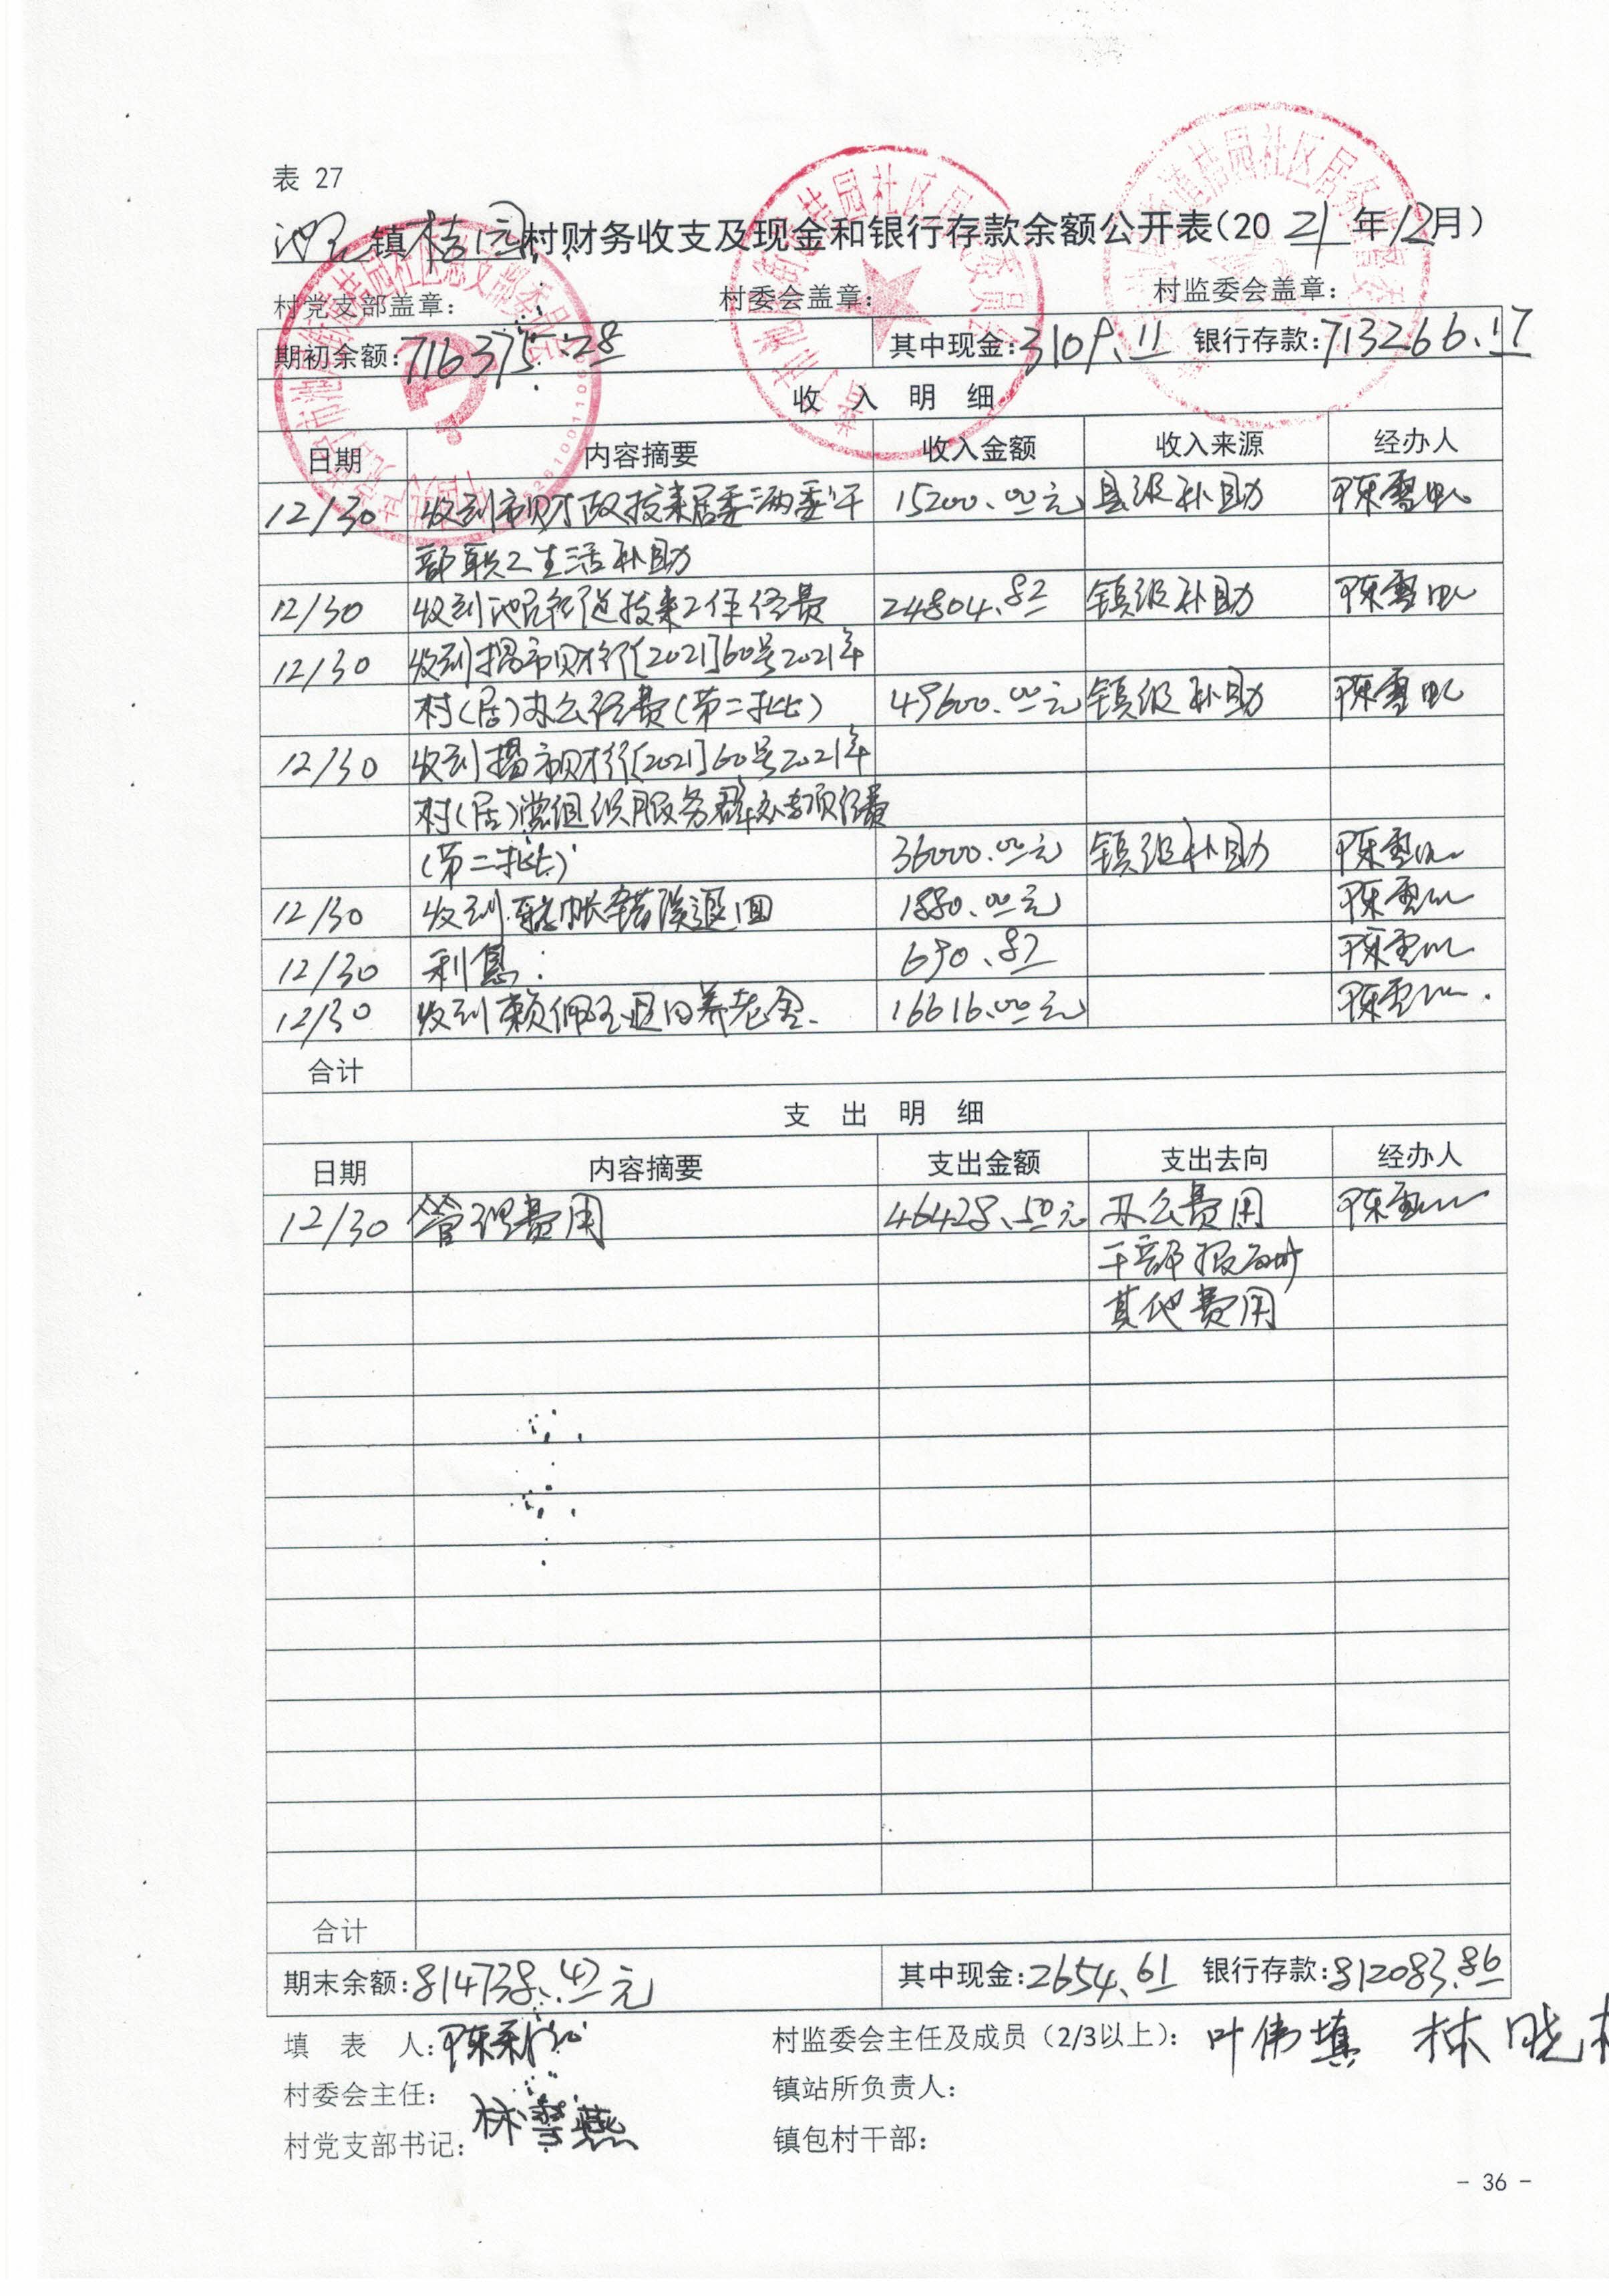 表 27
池尾镇桔园村财务收支及现金和银行存款余额公开表(2021年12月)
村党支部盖章: 村委会盖章: 村监委会盖章:
期初余额:716375.28 其中现金:3109.11 银行存款:713266.17
收 入 明 细
日期 内容摘要 收入金额 收入来源 经办人
12/30 收到市财政拨来居委两委干 15200.00元 县级补助
部职工生活补助
12/30 收到池尾街道拨来工作经费 24804.82 镇级补助
12/30 收到揭市财行[2021]60号2021年
村(居)办公经费(第二批) 49600.00元 镇级补助
12/30 收到揭市财行[2021]60号2021年
村(居)党组织服务群众专项经费
(第二批) 36000.00元 镇级补助
12/30 收到转帐错误退回 1880.00元
12/30 利息: 690.82
12/30 收到赖佩玉退回养老金. 16616.00元
合计
支 出 明 细
日期 内容摘要 支出金额 支出去向 经办人
12/30 管理费用 46428.50元 办公费用
干部报酬
其他费用
合计
期末余额:814738.47元 其中现金:2654.61 银行存款:812083.86
填 表 人: 村监委会主任及成员(2/3以上): 叶伟填 林晓
村委会主任: 镇站所负责人:
林雪燕
村党支部书记: 镇包村干部:
- 36 -